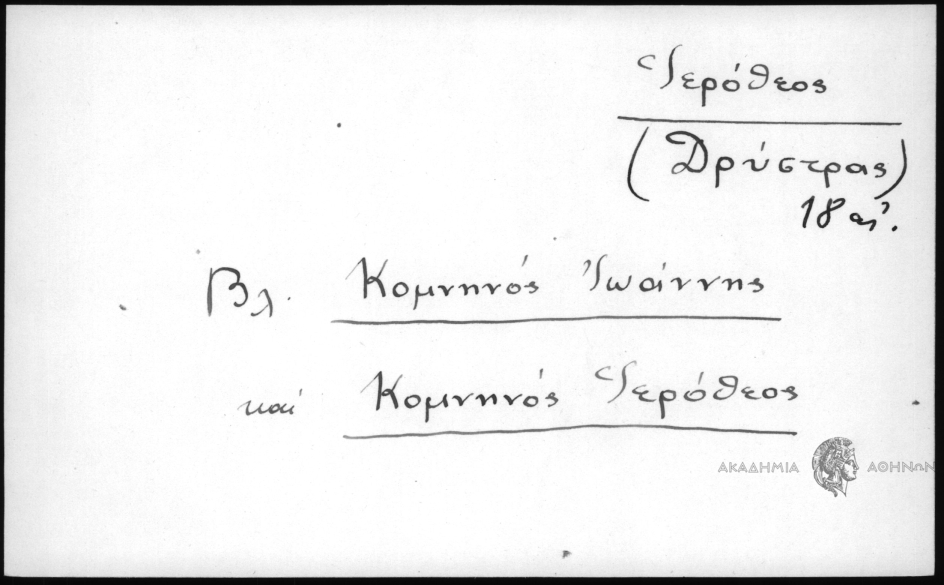 Ἱερόθεος
(Δρύστρας)
18 αἰ.
Βλ. Κομνηνός Ἰωάννης
καί Κομνηνός Ἱερόθεος
ΑΚΑΔΗΜΙΑ ΑΘΗΝΩΝ